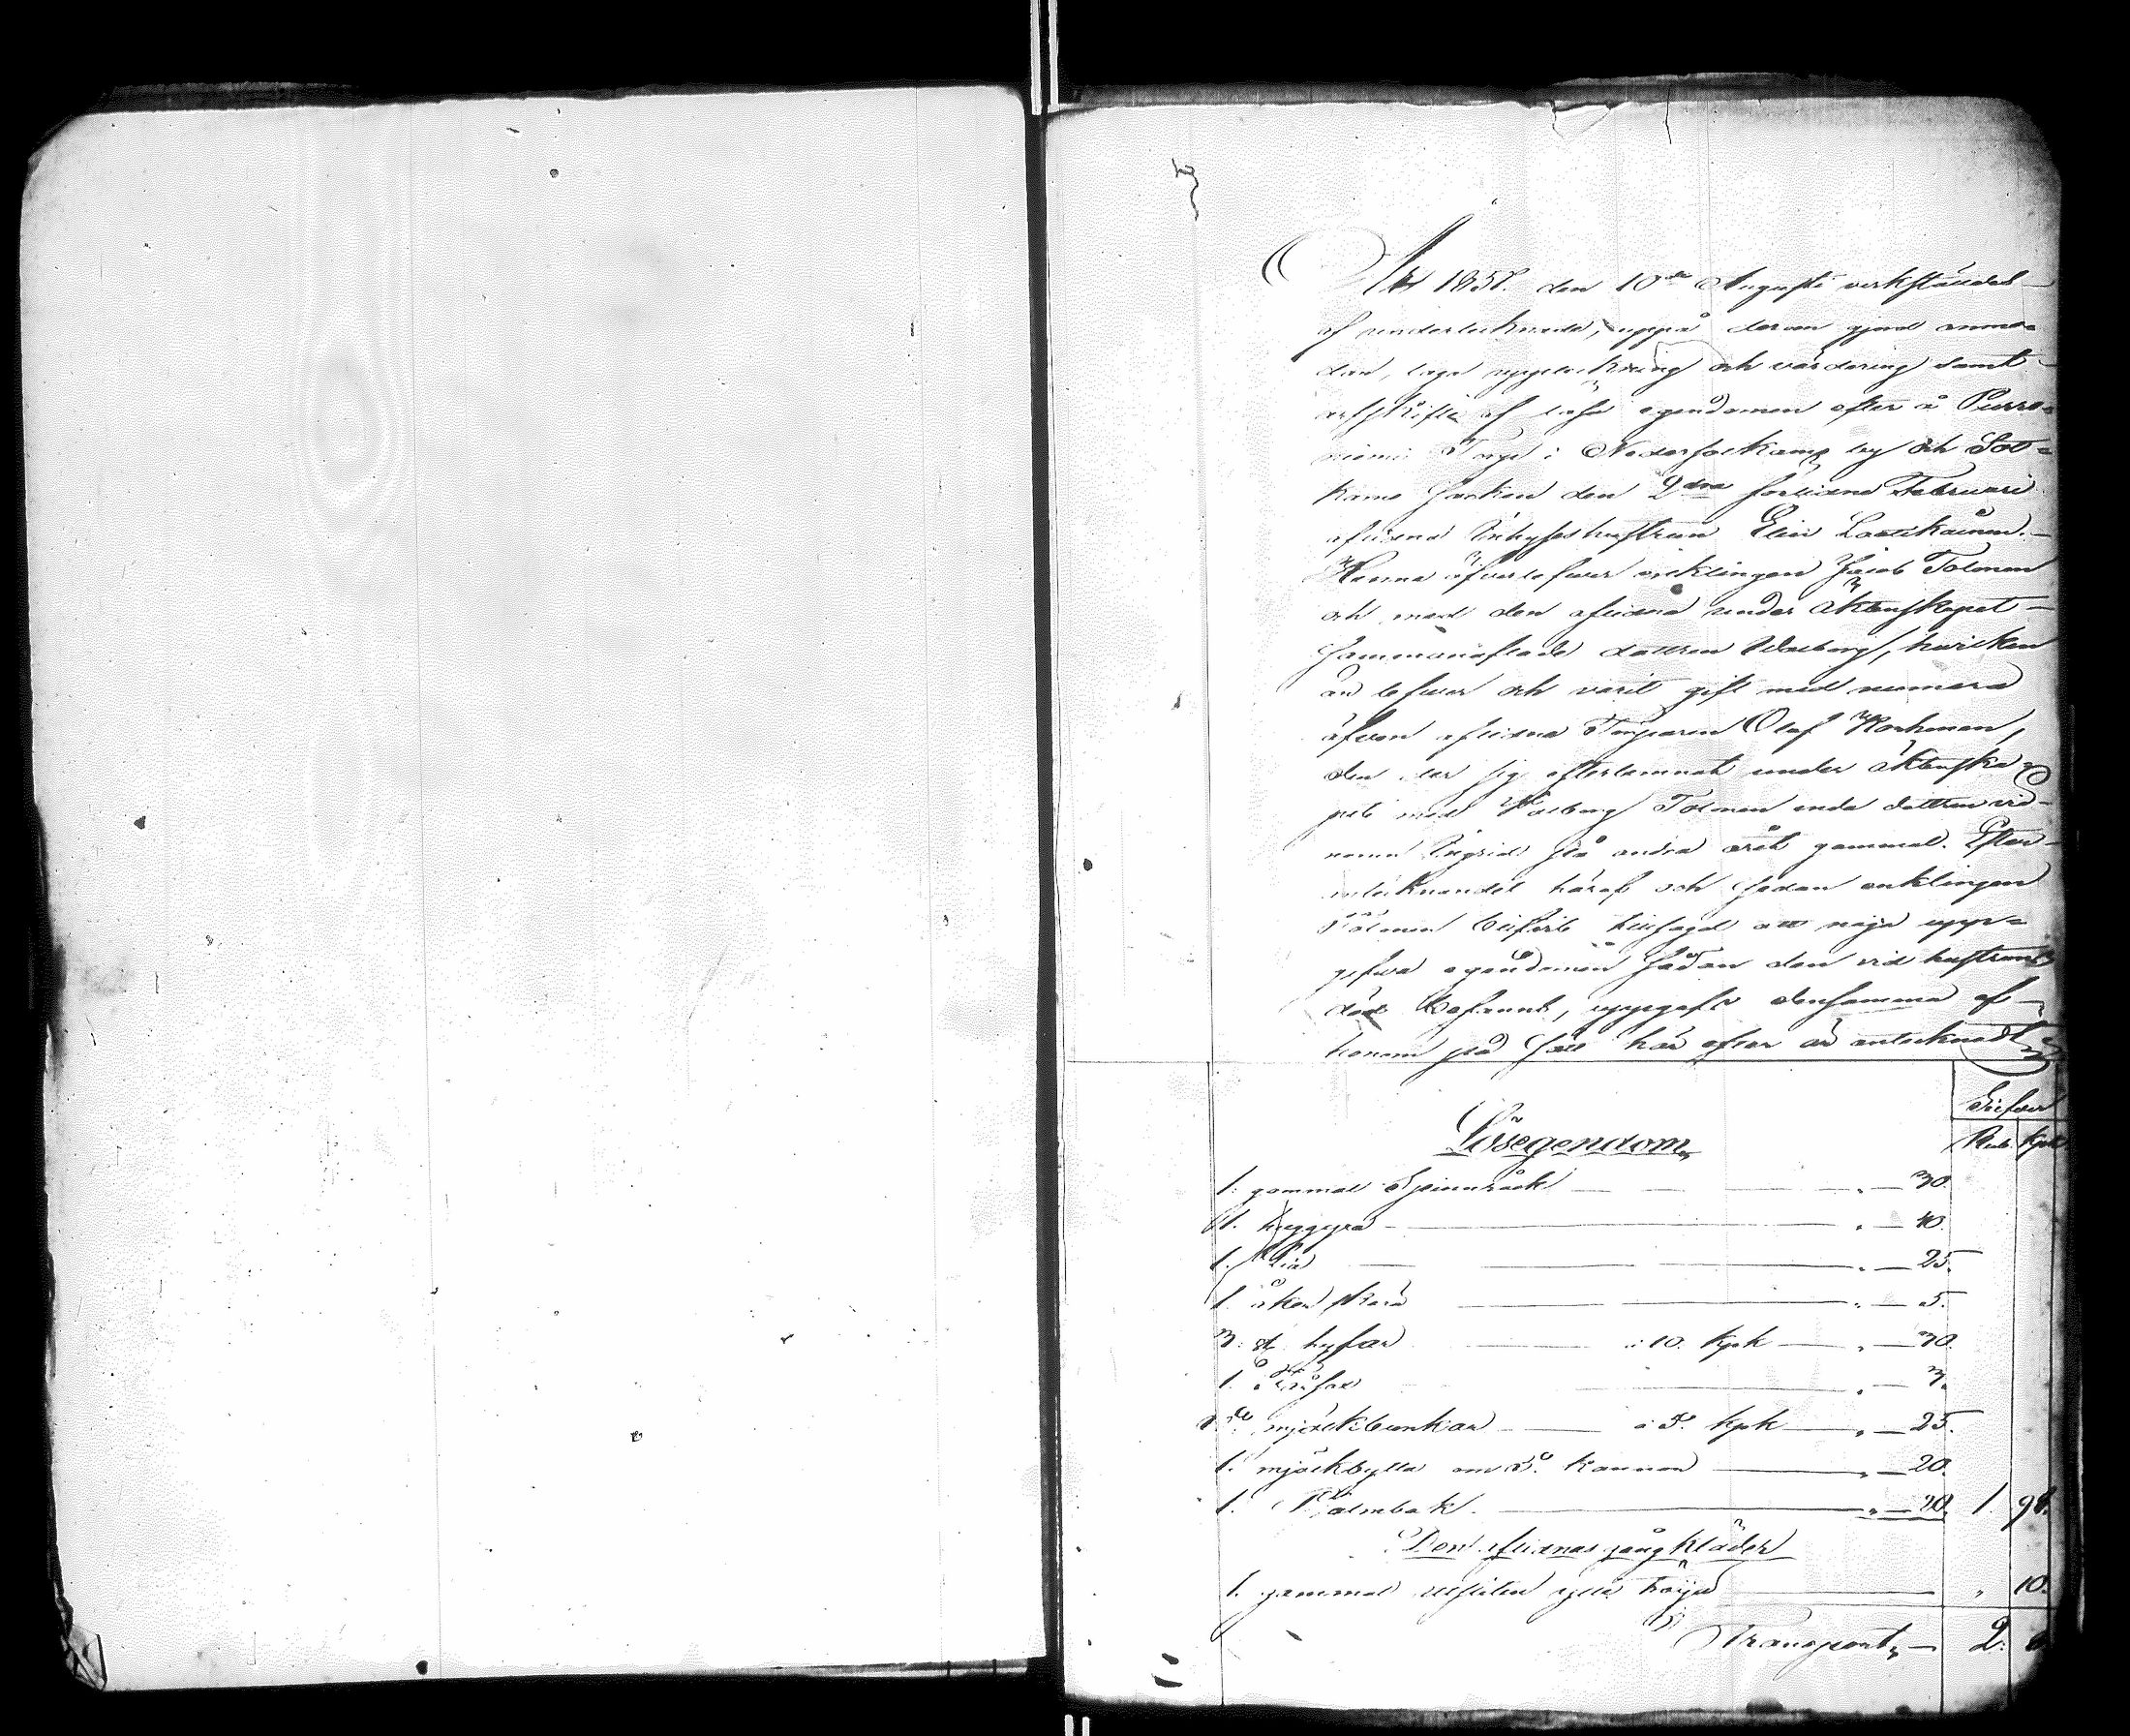 År 1858. den 10de Augusti verkstäldes
af undertecknade, uppå derom gjord anmo-
dan, laga uppteckning och värdering samt
arfskifte af lösa egendomen efter å Purro-
niemi Torp i Nedersotkamo by och Sot-
kamo Socken den 2dra sistledne Februari
aflidna Inhyseshustrun Elin Lautikainen.
Henne öfverlefver enklingen Jacob Tolonen
och med den aflidna under äktenskapet
sammanaflade dottren Walborg, hvilken
än lefver och varit gift med numera
äfven aflidna Torparen Olaf Korhonen,
den der sig efterlemnat under äktenska-
pet med Walborg Tolonen enda dottren vid
namn Ingrid på andra året gammal. Efter
antecknandet häraf och sedan enklingen
Tolonen blifvit tillsagd att noga upp-
gifva egendomen sådan den vid hustruns
död befanns, uppgafs densamma af
honom på sätt här efter är antecknadt
Silfver
Rub. Kpk
Lösegendom,
1. gammal Spinnråck " 30.
1. huggyxa " 40.
1. Lia " 25.
1. åker skära " 5.
3. st. byttor à 10. Kpk " 30.
1. " 3.
5. st. mjölkbunkar à 5. Kpk " 25.
1. mjölkbytta om 5. kannor " 20.
1. Psalmbok. " 20. 1. 98.
Den aflidnas gångkläder
1. gammal utsliten ylle tröija " 10.
Transport, 2. 8